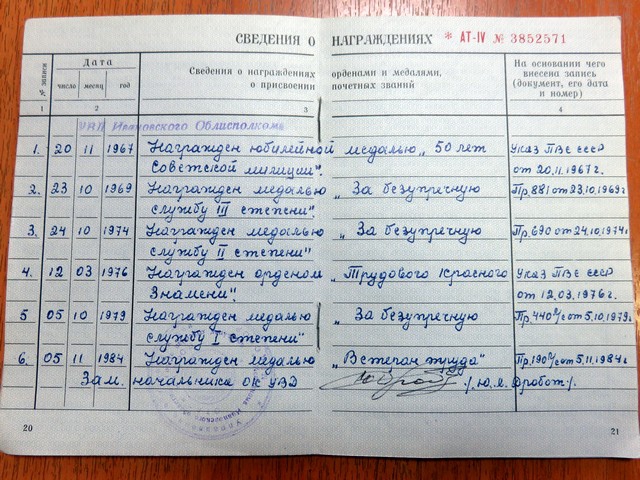 СВЕДЕНИЯ О НАГРАЖДЕНИЯХ * АТ-IV № 3852571
№ записи
Дата
число месяц год
Сведения о награждениях орденами и медалями,
о присвоении почетных званий
На основании чего
внесена запись
(документ, его дата
и номер)
1 2 3 4
УВД Ивановского Облисполкома
1. 20 11 1967 Награжден юбилейной медалью „50 лет Указ ПВС СССР
Советской милиции". от 20.11.1967г.
2. 23 10 1969 Награжден медалью „За безупречную Пр.881 от 23.10.1969г
службу III степени".
3. 24 10 1974 Награжден медалью „За безупречную Пр.690 от 24.10.1974г
службу II степени"
4. 12 03 1976 Награжден орденом „Трудового Красного Указ ПВС СССР
Знамени". от 12.03.1976г.
5 05 10 1979 Награжден медалью „За безупречную Пр.440л/с от 5.10.1979г.
службу I степени"
6. 05 11 1984 Награжден медалью „Ветеран труда" Пр.190л/с от 5.11.1984г
Зам. начальника ОК УВД /Ю.А. Дробот/.
20
21